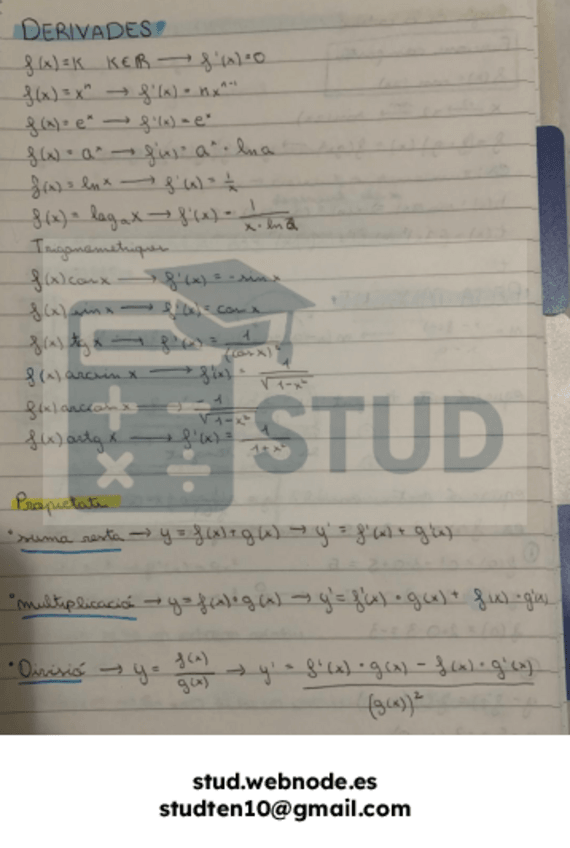 DERIVADES
f(x)=K K∈R → f'(x)=0
f(x)=xⁿ → f'(x)=nxⁿ⁻¹
f(x)=eˣ → f'(x)=eˣ
f(x)=aˣ → f'(x)=aˣ·ln a
f(x)=ln x → f'(x)=1/x
f(x)=logₐx → f'(x)=1/(x·ln a)
Trigonometriques
f(x) cos x → f'(x)=-sin x
f(x) sin x → f'(x)=cos x
f(x) tg x → f'(x)=1/(cos x)²
f(x) arcsin x → f'(x)=1/√(1-x²)
f(x) arccos x → -1/√(1-x²)
f(x) artg x → f'(x)=1/(1+x²)
STUD
Propietats
•suma resta → y=f(x)+g(x) → y'=f'(x)+g'(x)
•multiplicació → y=f(x)·g(x) → y'=f'(x)·g(x)+f(x)·g'(x)
•Divisió → y=f(x)/g(x) → y'=(f'(x)·g(x)-f(x)·g'(x))/(g(x))²
stud.webnode.es
studten10@gmail.com